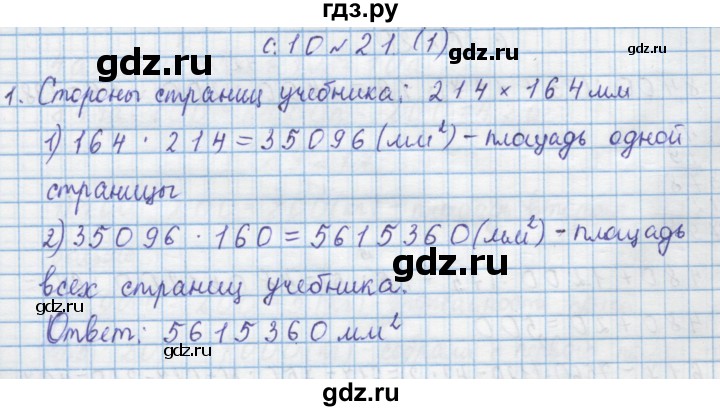 гдз.ру
gdz.ru gdz.ru
с.10 № 21 (1)
1. Стороны страниц учебника: 214 × 164 мм
gdz.ru
1) 164 · 214 = 35096 (мм²) – площадь одной
gdz.ru
страницы
2) 35096 · 160 = 5615360 (мм²) – площадь
gdz.ru gdz.ru
всех страниц учебника.
gdz.ru
Ответ: 5615360 мм²
gdz.ru
gdz.ru